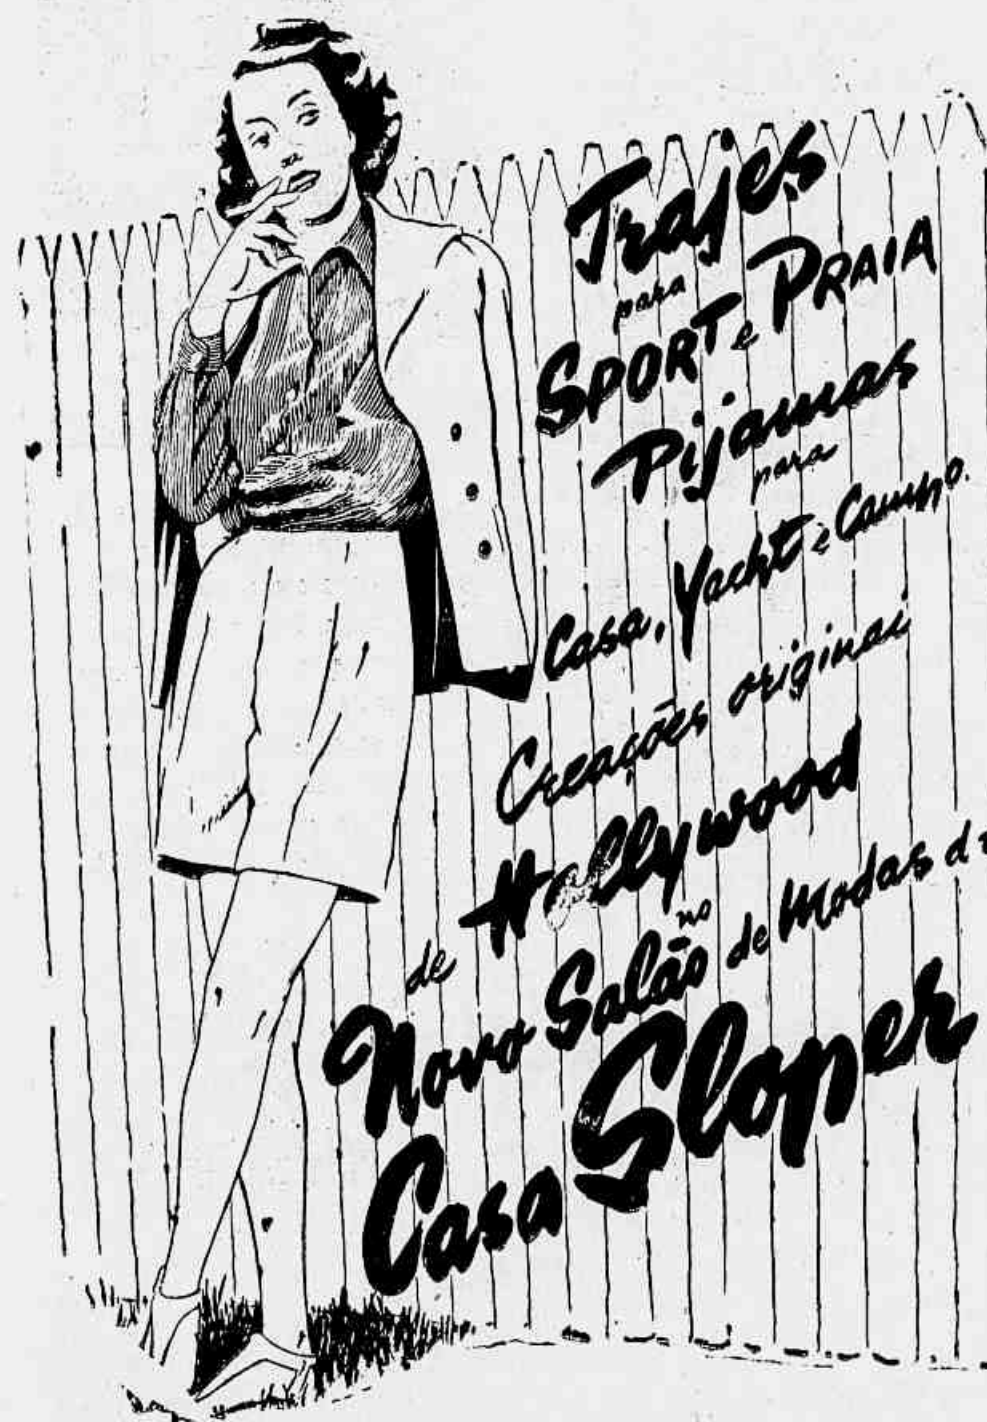 Trajes
para
SPORT e PRAIA
Pijamas
para
Casa, Yacht e Campo.
Creações originai
de Hollywood
no
Novo Salão de Modas d
Casa Sloper